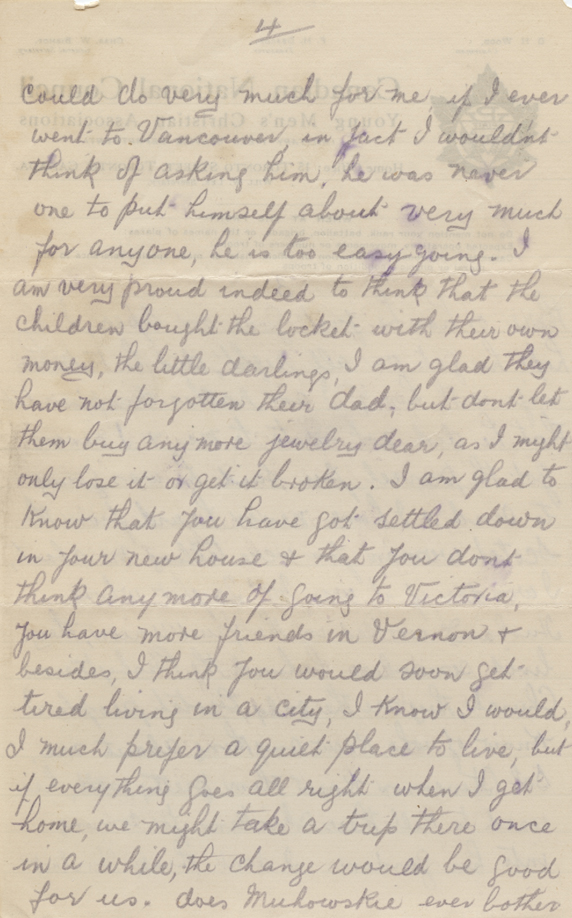 4
could do very much for me, if I ever
went to. Vancouver, in fact I wouldnt
think of asking him, he was never
one to put himself about very much
for anyone, he is too easy going. I
am very proud indeed to think that the
children bought the locket with their own
money, the little darlings, I am glad they
have not forgotten their dad, but dont let
them buy any more jewelry dear, as I might
only lose it or get it broken. I am glad to
know that you have got settled down
in your new house & that you dont
think any more of going to Victoria,
you have more friends in Vernon &
besides, I think you would soon get
tired living in a city, I know I would,
I much prefer a quiet place to live, but
if everything goes all right when I get
home, we might take a trip there once
in a while, the change would be good
for us. does Muhowskie ever bother
Canadian National Council
Young Men's Christian Associations